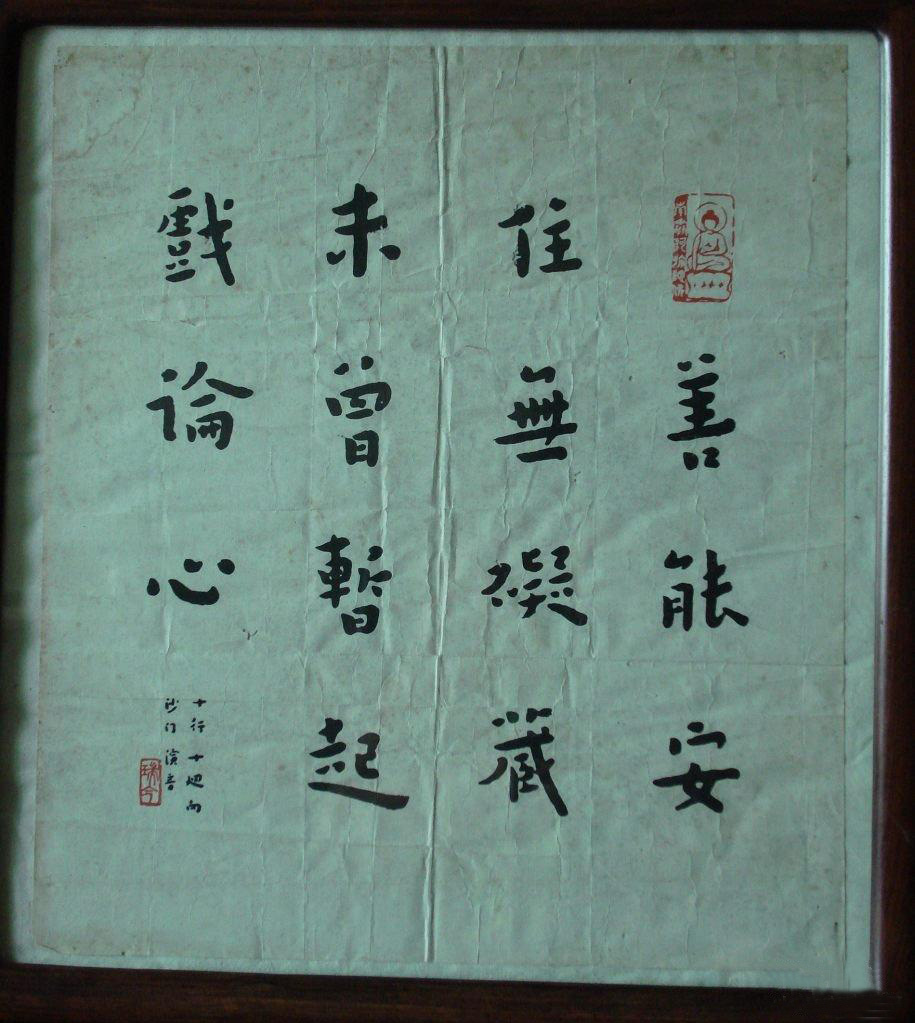 善能安
住無礙藏
未曾暫起
戲論心
十行十迴向
沙门演音